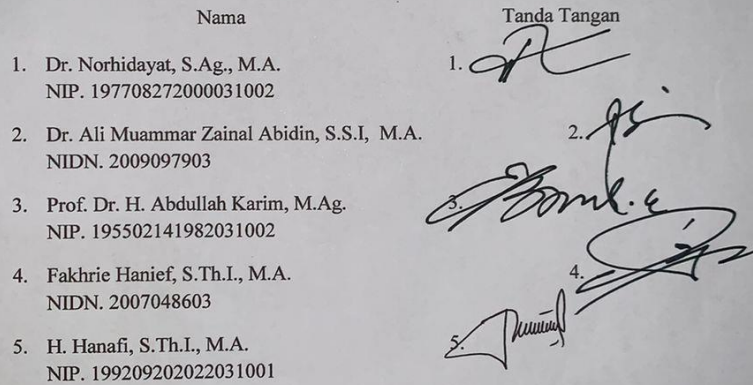 Nama Tanda Tangan
1. Dr. Norhidayat, S.Ag., M.A. 1.
NIP. 197708272000031002
2. Dr. Ali Muammar Zainal Abidin, S.S.I, M.A. 2.
NIDN. 2009097903
3. Prof. Dr. H. Abdullah Karim, M.Ag. 3.
NIP. 195502141982031002
4. Fakhrie Hanief, S.Th.I., M.A. 4.
NIDN. 2007048603
5. H. Hanafi, S.Th.I., M.A. 5.
NIP. 199209202022031001